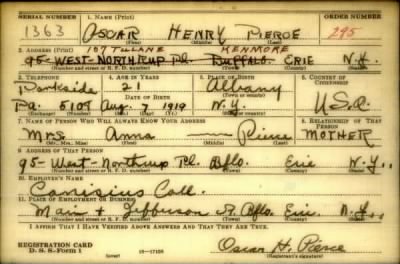 SERIAL NUMBER 1. NAME (Print) ORDER NUMBER
1363 OSCAR HENRY PIERCE 295
(First) (Middle) (Last)
2. ADDRESS (Print) 107 TULANE KENMORE
95-WEST-NORTHRUP Pl. BUFFALO. ERIE N.Y.
(Number and street or R. F. D. number) (Town) (County) (State)
3. TELEPHONE 4. AGE IN YEARS 5. PLACE OF BIRTH 6. COUNTRY OF CITIZENSHIP
Parkside 21 Albany
DATE OF BIRTH (Town or county) U.S.A.
Pa. 5109 Aug. 7 1919 N.Y.
(Exchange) (Number) (Mo.) (Day) (Yr.) (State or country)
7. NAME OF PERSON WHO WILL ALWAYS KNOW YOUR ADDRESS 8. RELATIONSHIP OF THAT PERSON
Mrs. Anna — Pierce MOTHER
(Mr., Mrs., Miss) (First) (Middle) (Last)
9. ADDRESS OF THAT PERSON
95-West-Northrup Pl. Bflo. Erie N.Y.
(Number and street or R. F. D. number) (Town) (County) (State)
10. EMPLOYER'S NAME
Canisius Coll.
11. PLACE OF EMPLOYMENT OR BUSINESS
Main + Jefferson Bflo. Erie N.Y.
(Number and street or R. F. D. number) (Town) (County) (State)
I AFFIRM THAT I HAVE VERIFIED ABOVE ANSWERS AND THAT THEY ARE TRUE.
REGISTRATION CARD
D. S. S. Form 1 (over) 16—17105 Oscar H. Pierce
(Registrant's signature)